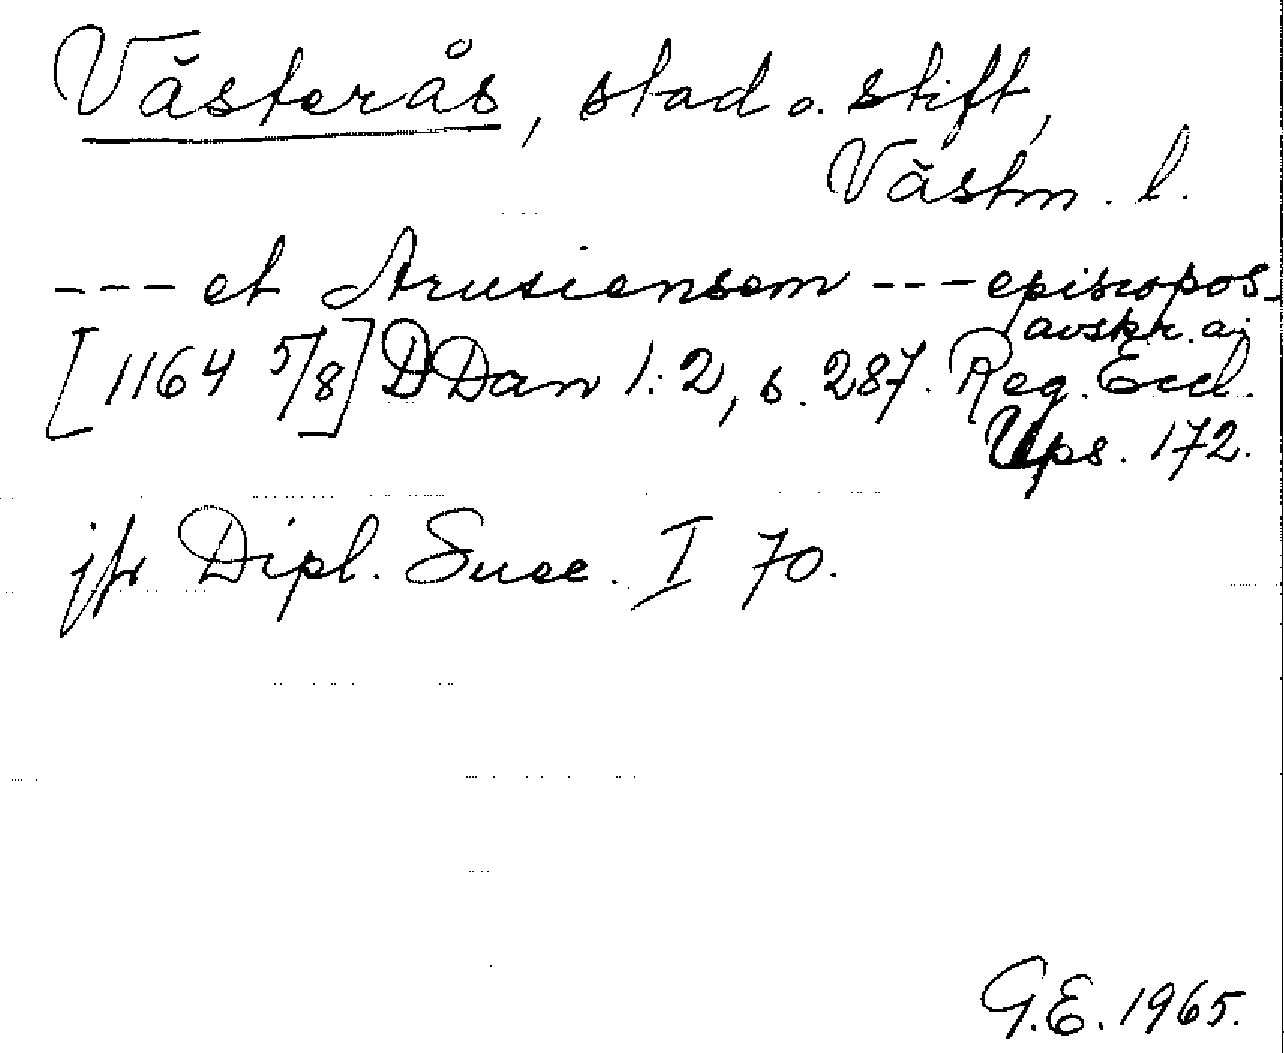 Västerås, stad o. stift,
Västm. l.
--- et Arusiensem --- episcopos
avskr. a.
[1164 5/8] DDan 1:2, s. 287. Reg. Eccl.
Ups. 172.
jfr Dipl. Suec. I 70.
G.E. 1965.